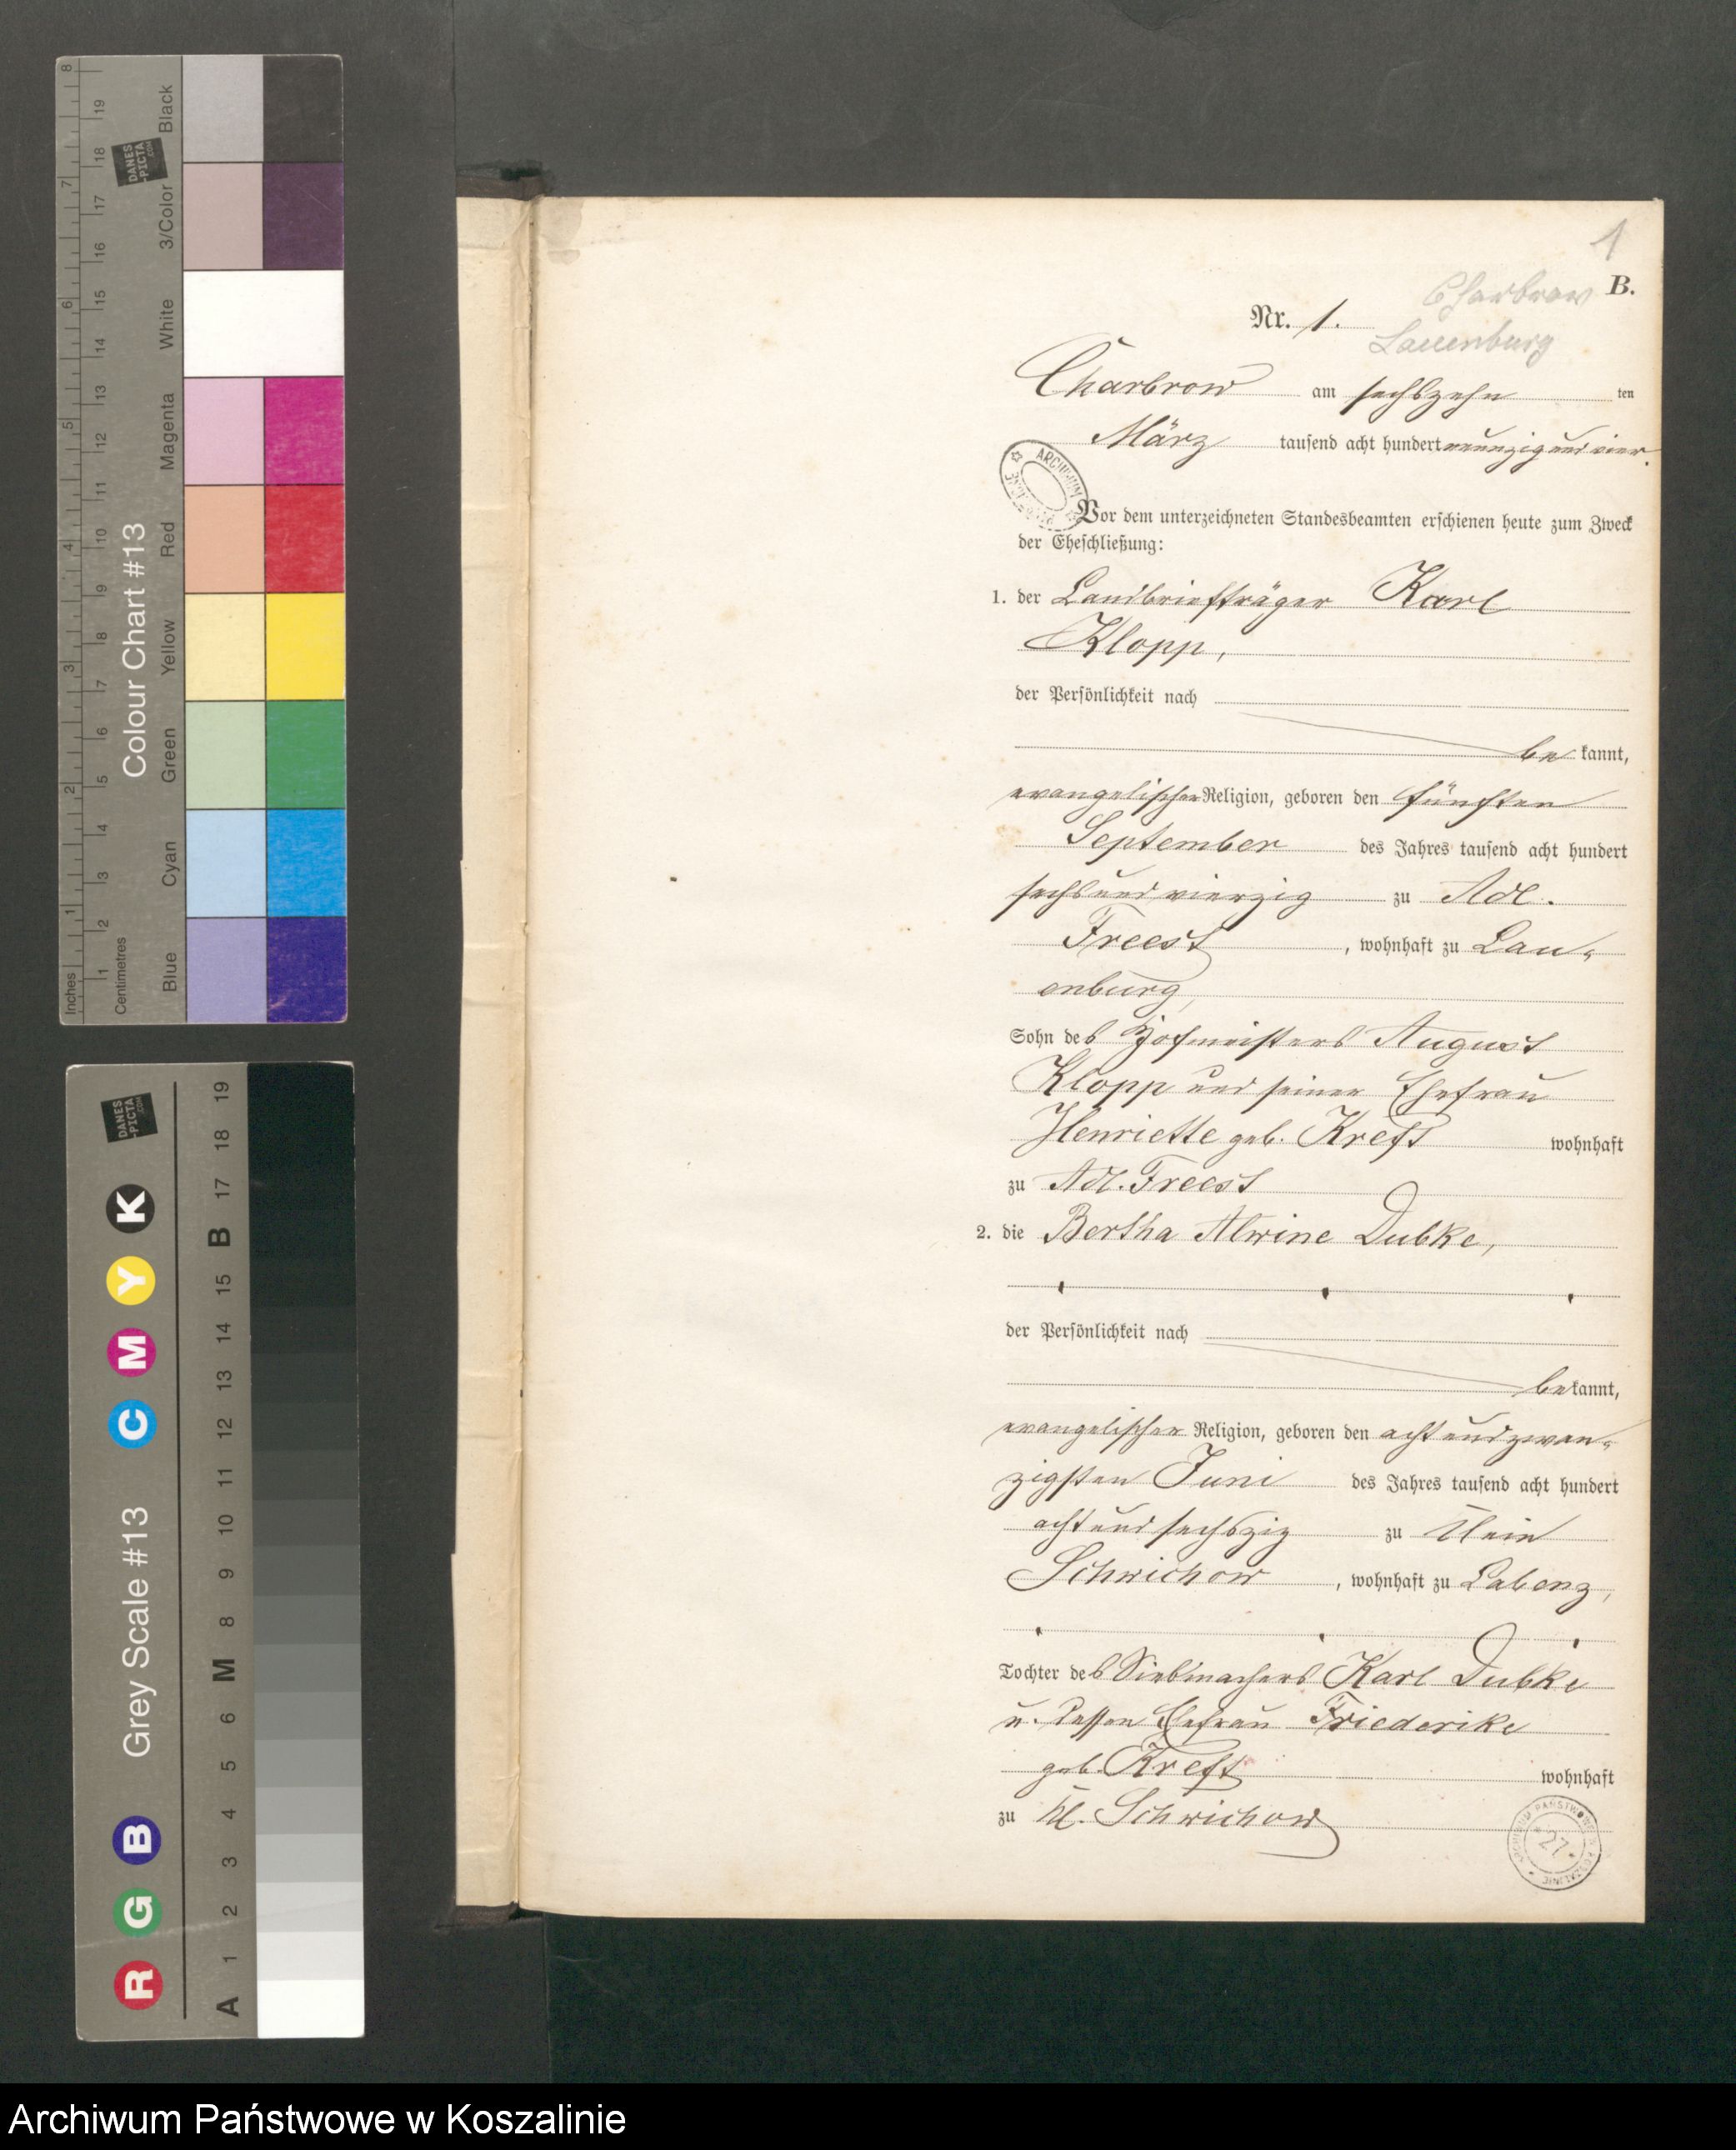 1
B.
Charbrow
Nr. 1.
Lauenburg
Charbrow am sechszehn ten
März tausend acht hundert neunzig und vier.
Vor dem unterzeichneten Standesbeamten erschienen heute zum Zweck
der Eheschließung:
1. der Landbriefträger Karl
Klopp,
der Persönlichkeit nach
be kannt,
evangelischer Religion, geboren den fünften
September des Jahres tausend acht hundert
sechs und vierzig zu Adl.
Freest, wohnhaft zu Lau-
enburg,
Sohn des Hofmeisters August
Klopp und seiner Ehefrau
Henriette geb. Kreft wohnhaft
zu Adl. Freest
2. die Bertha Alwine Dubke,
der Persönlichkeit nach
be kannt,
evangelischer Religion, geboren den acht und zwan-
zigsten Juni des Jahres tausend acht hundert
acht und sechszig zu Klein
Schwichow, wohnhaft zu Labenz,
Tochter des Siebmachers Karl Dubke
u. dessen Ehefrau Friederike
geb. Kreft wohnhaft
zu Kl. Schwichow
ARCHIWUM PAŃSTWOWE W KOSZALINIE
* 27 *
Inches
1 2 3 4 5 6 7 8
Centimetres
1 2 3 4 5 6 7 8 9 10 11 12 13 14 15 16 17 18 19
Colour Chart #13
Blue Cyan Green Yellow Red Magenta White 3/Color Black
DANES
-PICTA
.COM
Grey Scale #13
R G B C M Y K
A 1 2 3 4 5 6 M 8 9 10 11 12 13 14 15 B 17 18 19
DANES
-PICTA
.COM
Archiwum Państwowe w Koszalinie